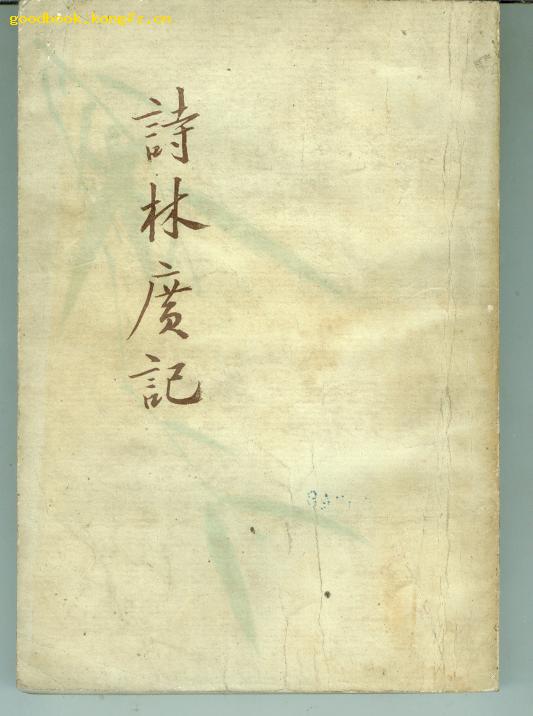 goodbook.kongfz.cn
詩林廣記